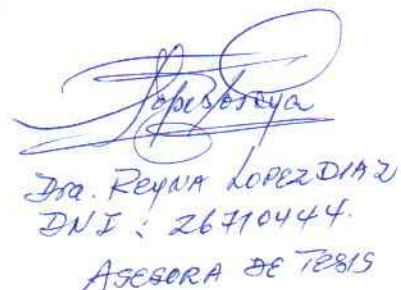 Dra. REYNA LOPEZ DIAZ
DNI : 26710444.
ASESORA DE TESIS